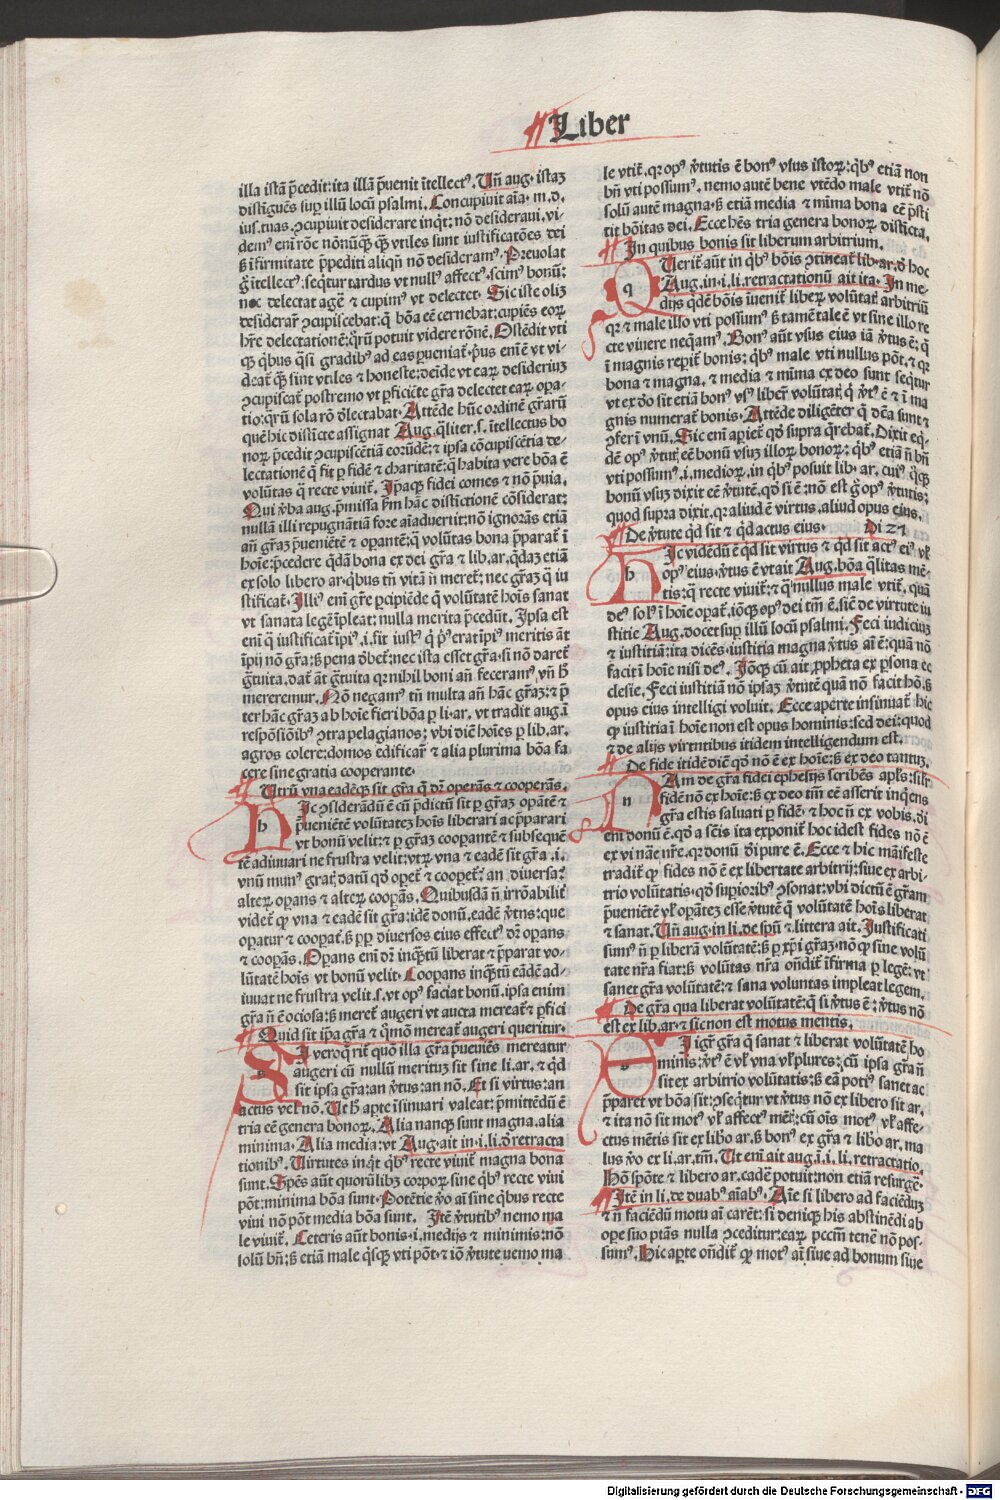 Liber
illa istā p̄cedit: ita illā p̄uenit ītellectꝰ. Un̄ aug. istaꝫ
distīguēs suꝑ illū locū psalmi. Concupiuit aīa. m. d.
iusꝰ. tuas. ꝯcupiuit desiderare inqͥt: nō desideraui. vi-
demꝰ eni rōe nōnūqͣꝫ qͣꝫ vtiles sunt iustificatōes dei
ꝫ īfirmitate p̄pediti aliqn̄ nō desideramꝰ. Preuolat
g̊ ītellectꝰ. seqͥtur tardus vt nullꝰ affectꝰ. scimꝰ bonū:
nec delectat agē ⁊ cupimꝰ vt delectet. Sic iste olīꝫ
desiderar̄ ꝯcupiscebat: q̄ bōa eē cernebat: cupiēs eoꝝ
hr̄e delectationē: qͣrū potuit videre rōnē. Ostēdit vti
qꝫ qͥbus qͣsi gradibꝰ ad eas ꝑueniat. pͥus eni ē vt vi-
deat̄ qͣꝫ sint vtiles ⁊ honeste: deīde vt eaꝝ desideriuꝫ
ꝯcupiscat̄ postremo vt ꝓficiēte gr̄a delectet eaꝝ opa-
tio: qͣrū sola rō d̓lectabat. Attēde hūc ordinē gr̄arū
quē hic distīcte assignat Aug. qͣliter. s. ītellectus bo
noꝝ p̄cedit ꝯcupiscētiā eorūdē: ⁊ ipsa cōcupiscētia de-
lectationē q̄ fit ꝑ fidē ⁊ charitatē: q̄ habita vere bōa ē
volūtas q̄ recte viuit̄. Ip̄aqꝫ fidei comes ē nō p̄uia.
Qui v̓ba aug. p̄missa ẜm hāc distīctionē cōsiderat:
nullā illi repugnātiā fore aīaduertit: nō ignorās etiā
an̄ gr̄aꝫ p̄ueniētē ⁊ operātē: q̄ volūtas bona p̄parat̄ ī
hoīe: p̄cedere qͣdā bona ex dei gr̄a ⁊ lib. ar. qͣdaꝫ etiā
ex solo libero ar. qͥbus tn̄ vitā n̄ meret̄: nec gr̄aꝫ q̄ iu
stificat̄. Illiꝰ eni gr̄e ꝑcipiēde q̄ volūtatē hoīs sanat
vt sanata legē īpleat: nulla merita p̄cedūt. Ipsa est
eni q̄ iustificat̄ īpiꝰ. i. fit iustꝰ q̄ pͥꝰ erat īpiꝰ meritis āt
īpij nō gr̄a: ꝫ pena d̓bet̄: nec ista esset gr̄a. si nō daret̄
gr̄tuita. dat̄ āt gr̄tuita qꝛ nihil boni an̄ feceramꝰ. vn̄ h̓
mereremur. Nō negamꝰ tn̄ multa an̄ hāc gr̄aꝫ: ⁊ p̄
ter hāc gr̄aꝫ ab hoīe fieri bōa ꝑ li. ar. vt tradit aug. ī
respōsiōibꝰ ꝯtra pelagianos: vbi diē hoīes ꝑ lib. ar.
agros colere: domos edificar̄ ⁊ alia plurima bōa fa
cere sine gratia cooperante.
Utrū vna eadēqꝫ sit gr̄a q̄ dr̄ operās ⁊ cooperās.
h
Ic ꝯsiderādū ē cū p̄dictū sit ꝑ gr̄aꝫ opātē ⁊
p̄ueniētē volūtateꝫ hoīs liberari ac p̄parari
vt bonū velit: ⁊ ꝑ gr̄aꝫ coopantē ⁊ subsequē
tē adiuuari ne frustra velit: vtꝝ vna ⁊ eadē sit gr̄a. i.
vnū munꝰ grat̄ datū qd̓ opet̄ ⁊ coopet̄: an diuersa:
alteꝝ opans ⁊ alteꝝ coopās. Quibusdā n̄ irrōabilit̄
videt̄ qꝫ vna ⁊ eadē sit gr̄a: idē donū. eadē v̓tus: que
opatur ⁊ coopat̄. ꝫ ꝓpͭ diuersos eius effectꝰ dr̄ opans
⁊ coopās. Opans eni dr̄ inqͣtū liberat ⁊ p̄parat vo-
lūtatē hoīs vt bonū velit. Coopans inqͣtū eādē ad-
iuuat ne frustra velit. s. vt opꝰ faciat bonū. ipsa enim
gr̄a n̄ ē ociosa: ꝫ meret̄ augeri vt aucta mereat̄ ⁊ ꝑfici
Quid sit ip̄a gr̄a ⁊ qͥmō mereat̄ augeri queritur.
S
I veroqͥrit̄ quō illa gr̄a p̄ueniēs mereatur
augeri cū nullū merituꝫ sit sine li. ar. ⁊ qͥd
sit ipsa gr̄a: an v̓tus: an nō. Et si virtus: an
actus vel nō. Ut h̓ apte īsinuari valeat: p̄mittēdū ē
tria eē genera bonoꝝ. Alia nanqꝫ sunt magna. alia
minima. Alia media: vt Aug. ait in. i. li. d̓ retracta
tionibꝰ. Uirtutes inqͥt qͥbꝰ recte viuit̄ magna bona
sunt. Spēs aūt quorūlibꝫ corpoꝝ sine qͥbꝰ recte viui
pōt: minima bōa sunt. Potētie v̓o aī sine qͥbus recte
viui nō pōt media bōa sunt. Itē v̓tutibꝰ nemo ma
le viuit̄. Ceteris aūt bonis. i. medijs ⁊ minimis: nō
solū bn̄: ꝫ etiā male qͥsqꝫ vti pōt. ⁊ iō v̓tute nemo ma
le vtit̄. qꝛ opꝰ v̓tutis ē bonꝰ vsus istoꝝ: qͥbꝰ etiā non
bn̄ vti possumꝰ. nemo autē bene vtēdo male vtit̄ nō
solū autē magna. ꝫ etiā media ⁊ mīma bona eē p̄sti
tit bōitas dei. Ecce hēs tria genera bonoꝝ distīcta.
In quibus bonis sit liberum arbitrium.
q
Uerit̄ aūt in qͥbꝰ bōis ꝯtineat̄ lib. ar. d̓ hoc
Aug. in. i. li. retractationū ait ita. In me-
dijs qͥdē bōis īuenit̄ liberꝝ volūtat̄ arbitriū
qꝛ ⁊ male illo vti possumꝰ ꝫ tamē tale ē vt sine illo re
cte viuere neqamꝰ. Bonꝰ aūt vsus eius iā v̓tus ē: q̄
ī magnis reperit̄ bonis: qͥbꝰ male vti nullus pōt. ⁊ qꝛ
bona ⁊ magna. ⁊ media ⁊ mīma ex deo sunt seqͥtur
vt ex d̓o sit etiā bonꝰ vsꝰ liber̄ volūtat̄. q̄ v̓tꝰ ē ⁊ ī ma
gnis numerat̄ bonis. Attēde diligēter q̄ dc̄a sunt ⁊
ꝯfer ī vnū. Sic eni apiet̄ qd̓ supra qͣrebat̄. Dixit eqͥ-
dē opꝰ v̓tut̄ eē bonū vsuꝫ illoꝝ bonoꝝ: qͥbꝰ etiā n̄ bn̄
vti possumꝰ. i. medioꝝ. in qͥbꝰ posuit lib. ar. cuiꝰ q̄qꝫ
bonū vsuꝫ dixit eē v̓tutē. qd̓ si ē: nō est g̊ opꝰ v̓tutis:
quod supra dixit. qꝛ aliud ē virtus. aliud opus eius.
De v̓tute qͥd sit ⁊ qͥd actus eius. Di 27
h
Ic vidēdū ē qͥd sit virtus ⁊ qͥd sit actꝰ eiꝰ vl̓
opꝰ eius. v̓tus ē vt ait Aug. bōa qͣlitas mē-
tis: q̄ recte viuit̄: ⁊ q̄ nullus male vtit̄. quā
deꝰ solꝰ ī hoīe opat̄. iōqꝫ opꝰ dei tm̄ ē. sic̄ de virtute iu
stitie Aug. docet suꝑ illū locū psalmi. Feci iudiciuꝫ
⁊ iustitiā: ita dicēs. iustitia magna v̓tus aī ē: quā nō
facit ī hoīe nisi deꝰ. Iōqꝫ cū ait ꝓpheta ex ꝑsona ec
clesie. Feci iustitiā nō ipsaꝫ v̓tutē quā nō facit hō. ꝫ
opus eius intelligi voluit. Ecce aperte insinuat̄ hic
qꝫ iustitia ī hoīe non est opus hominis: sed dei: quod
⁊ de alijs virtutibus itidem intelligendum est.
De fide itidē dicit̄ qd̓ nō ē ex hoīe: ꝫ ex deo tantuꝫ.
n
Am de gr̄a fidei ephesijs scribēs apl̓s: silr̄
fidē nō ex hoīe: ꝫ ex deo tm̄ eē asserit inqͥens
gr̄a estis saluati ꝑ fidē. ⁊ hoc n̄ ex vobis. d̓i
eni donū ē. qd̓ a scīs ita exponit̄ hoc idest fides nō ē
ex vi nāe nr̄e. qꝛ donū d̓i pure ē. Ecce ⁊ hic māifeste
tradit̄ qꝫ fides nō ē ex libertate arbitrij: siue ex arbi-
trio volūtatis. qd̓ supioribꝰ ꝯsonat: vbi dictū ē gr̄am
p̄ueniētē vl̓ opāteꝫ esse v̓tutē q̄ volūtatē hoīs liberat
⁊ sanat. Un̄ aug. in li. de spū ⁊ littera ait. Iustificati
sumꝰ n̄ ꝑ liberā volūtatē: ꝫ ꝑ xp̄i gr̄aꝫ. nō qꝫ sine volū
tate nr̄a fiat: ꝫ volūtas nr̄a ostēdit̄ īfirma ꝑ legē: vt
sanet gr̄a volūtatē: ⁊ sana voluntas impleat legem.
De gr̄a qua liberat volūtatē: q̄ si v̓tus ē: v̓tus nō
est ex lib. ar. ⁊ sic non est motus mentis.
S
I igr̄ gr̄a q̄ sanat ⁊ liberat volūtatē ho
minis: v̓tꝰ ē vl̓ vna vl̓ plures: cū ipsa gr̄a n̄
sit ex arbitrio volūtatis: ꝫ eā potiꝰ sanet ac
p̄paret vt bōa sit: ꝯseqͥtur vt v̓tus nō ex libero sit ar.
⁊ ita nō sit motꝰ vl̓ affectꝰ mēt̄: cū oīs motꝰ vl̓ affe-
ctus mētis sit ex libō ar. ꝫ bonꝰ ex gr̄a ⁊ libō ar. ma
lus v̓o ex li. ar. tm̄. Ut eni ait aug. ī. i. li. retractatio.
Hō spōte ⁊ libero ar. cadē potuit: non etiā resurgē.
Itē in li. de duabꝰ aīabꝰ. Aīe si libero ad faciēduꝫ
⁊ n̄ faciēdū motu aī carēt: si deniqꝫ his abstinēdi ab
ope suo ptās nulla ꝯceditur: eaꝝ pccm̄ tenē nō pos-
sumꝰ. Hic apte ostēdit̄ qꝫ motꝰ aī siue ad bonum siue
Digitalisierung gefördert durch die Deutsche Forschungsgemeinschaft - DFG